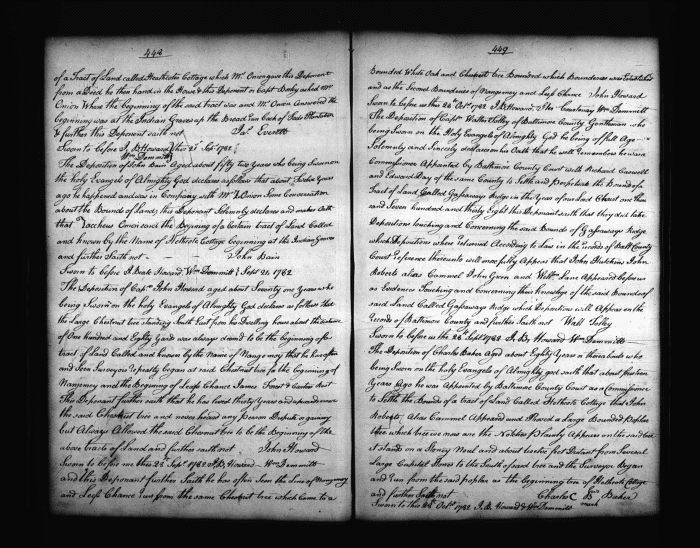 448
of a Tract of Land called Heathcote Cottage which Mr. Onion gave this Deponent
from a Deed he then had in the House & this Deponent & Capt. Boby asked Mr.
Onion Where the beginning of the said tract was and Mr. Onion Answered the
beginning was at the Indian Graves up the Broad Run
& further this Deponent saith not Jas. Everett
Sworn to before J. B. Howard this 25 Sept 1762
Wm Demmitt
The Deposition of John Bain Aged about fifty two Years who being Sworn on
the holy Evangels of Almighty God declares as follows that about Twelve Years
ago he happened and was in Company with Mr. Onion Some Conversation
about the Bounds of Land; this Deponent Solemnly declares and makes Oath
that Zaccheus Onion said the Beginning of a Certain tract of Land Called
and known by the Name of Hethcote Cottage beginning at the Indian Graves
and further saith not John Bain
Sworn to before J. Beale Howard Wm Demmitt Sept 21. 1762
The Deposition of Capt. John Howard aged about Seventy one Years who
being Sworn on the holy Evangels of Almighty God declares as follows that
the Large Chestnut tree standing South East from his Dwelling house about the distance
of One hundred and Eighty Yards was always deemed to be the beginning of a
tract of Land Called and known by the Name of Nangemoy that he has often
and Seen Surveyors Usually began at said Chestnut tree for the beginning of
Nangemoy and the Beginning of Leafs Chance James
The Deponent further saith that he has lived thirty Years and upwards near
the said Chestnut tree and never heard any Person Dispute its being
but Always Allowed the said Chesnut tree to be the Beginning of the
above tracts of Land and further saith not John Howard
Sworn to before me this 22d Sept 1762 J. B. Howard Wm Demmitt
and this Deponant further Saith he has often Seen the Lines of Nangemoy
and Leafs Chance run from the same Chestnut tree which came to a
449
Bounded White Oak and Chesnut tree Bounded which Boundaries was Established
and as the Second Boundaries of Nangemoy and Leafs Chance John Howard
Sworn to before this 26 Octr 1762 J. B. Howard. Wm Demmitt
The Deposition of Capt. Walter Tolley of Baltimore County Gentleman who
being Sworn on the Holy Evangels of Almighty God he being of full Age
Solemnly and Sincerely declares on his Oath that he well remembers he was a
Commissioner Appointed by Baltimore County Court with Richard Caswell
and Edward Day of the same County to Settle and Perpetuate the Bounds of a
Tract of Land Called Gassaways Ridge in the Year of our Lord Christ one thou
sand Seven hundred and thirty Eight this Deponent saith that they did take
Depositions touching and Concerning the said Bounds of Gassaways Ridge
which Depositions were returned According to Law in the records of Balt. County
Court reference thereunto will more fully Appear that John Hutchins John
Roberts alias Cammel John Green and Willm Lane Appeared before us
as Evidences Touching and Concerning their Knowledge of the said Bounds of
said Land Called Gassaways Ridge which Depositions will Appear on the
Records of Baltimore County and further Saith not Walt. Tolley
Sworn to before us the 26th Sept 1762 J. B. Howard Wm Demmitt
The Deposition of Charles Baker Aged about Eighty Years or thereabouts who
being Sworn on the holy Evangels of Almighty god saith that about fourteen
Years Ago he was Appointed by Baltimore County Court as a Commissioner
to Settle the Bounds of a tract of Land Called Hethcote Cottage that John
Roberts Alias Cammel Appeared and Proved a Large Bounded Poplar
tree which tree we now see the Notches Plainly Appears on the said tree
it stands on a Stoney Noul and about twelve feet Distant from Several
Large Capital Stones to the South of said tree and the Surveyor Began
and Run from the said poplar as the beginning tree of Hethcote Cottage
and further Saith not Charles C B his Baker
mark
Sworn to this 26th Octr 1762 J. B. Howard & Wm Demmitt